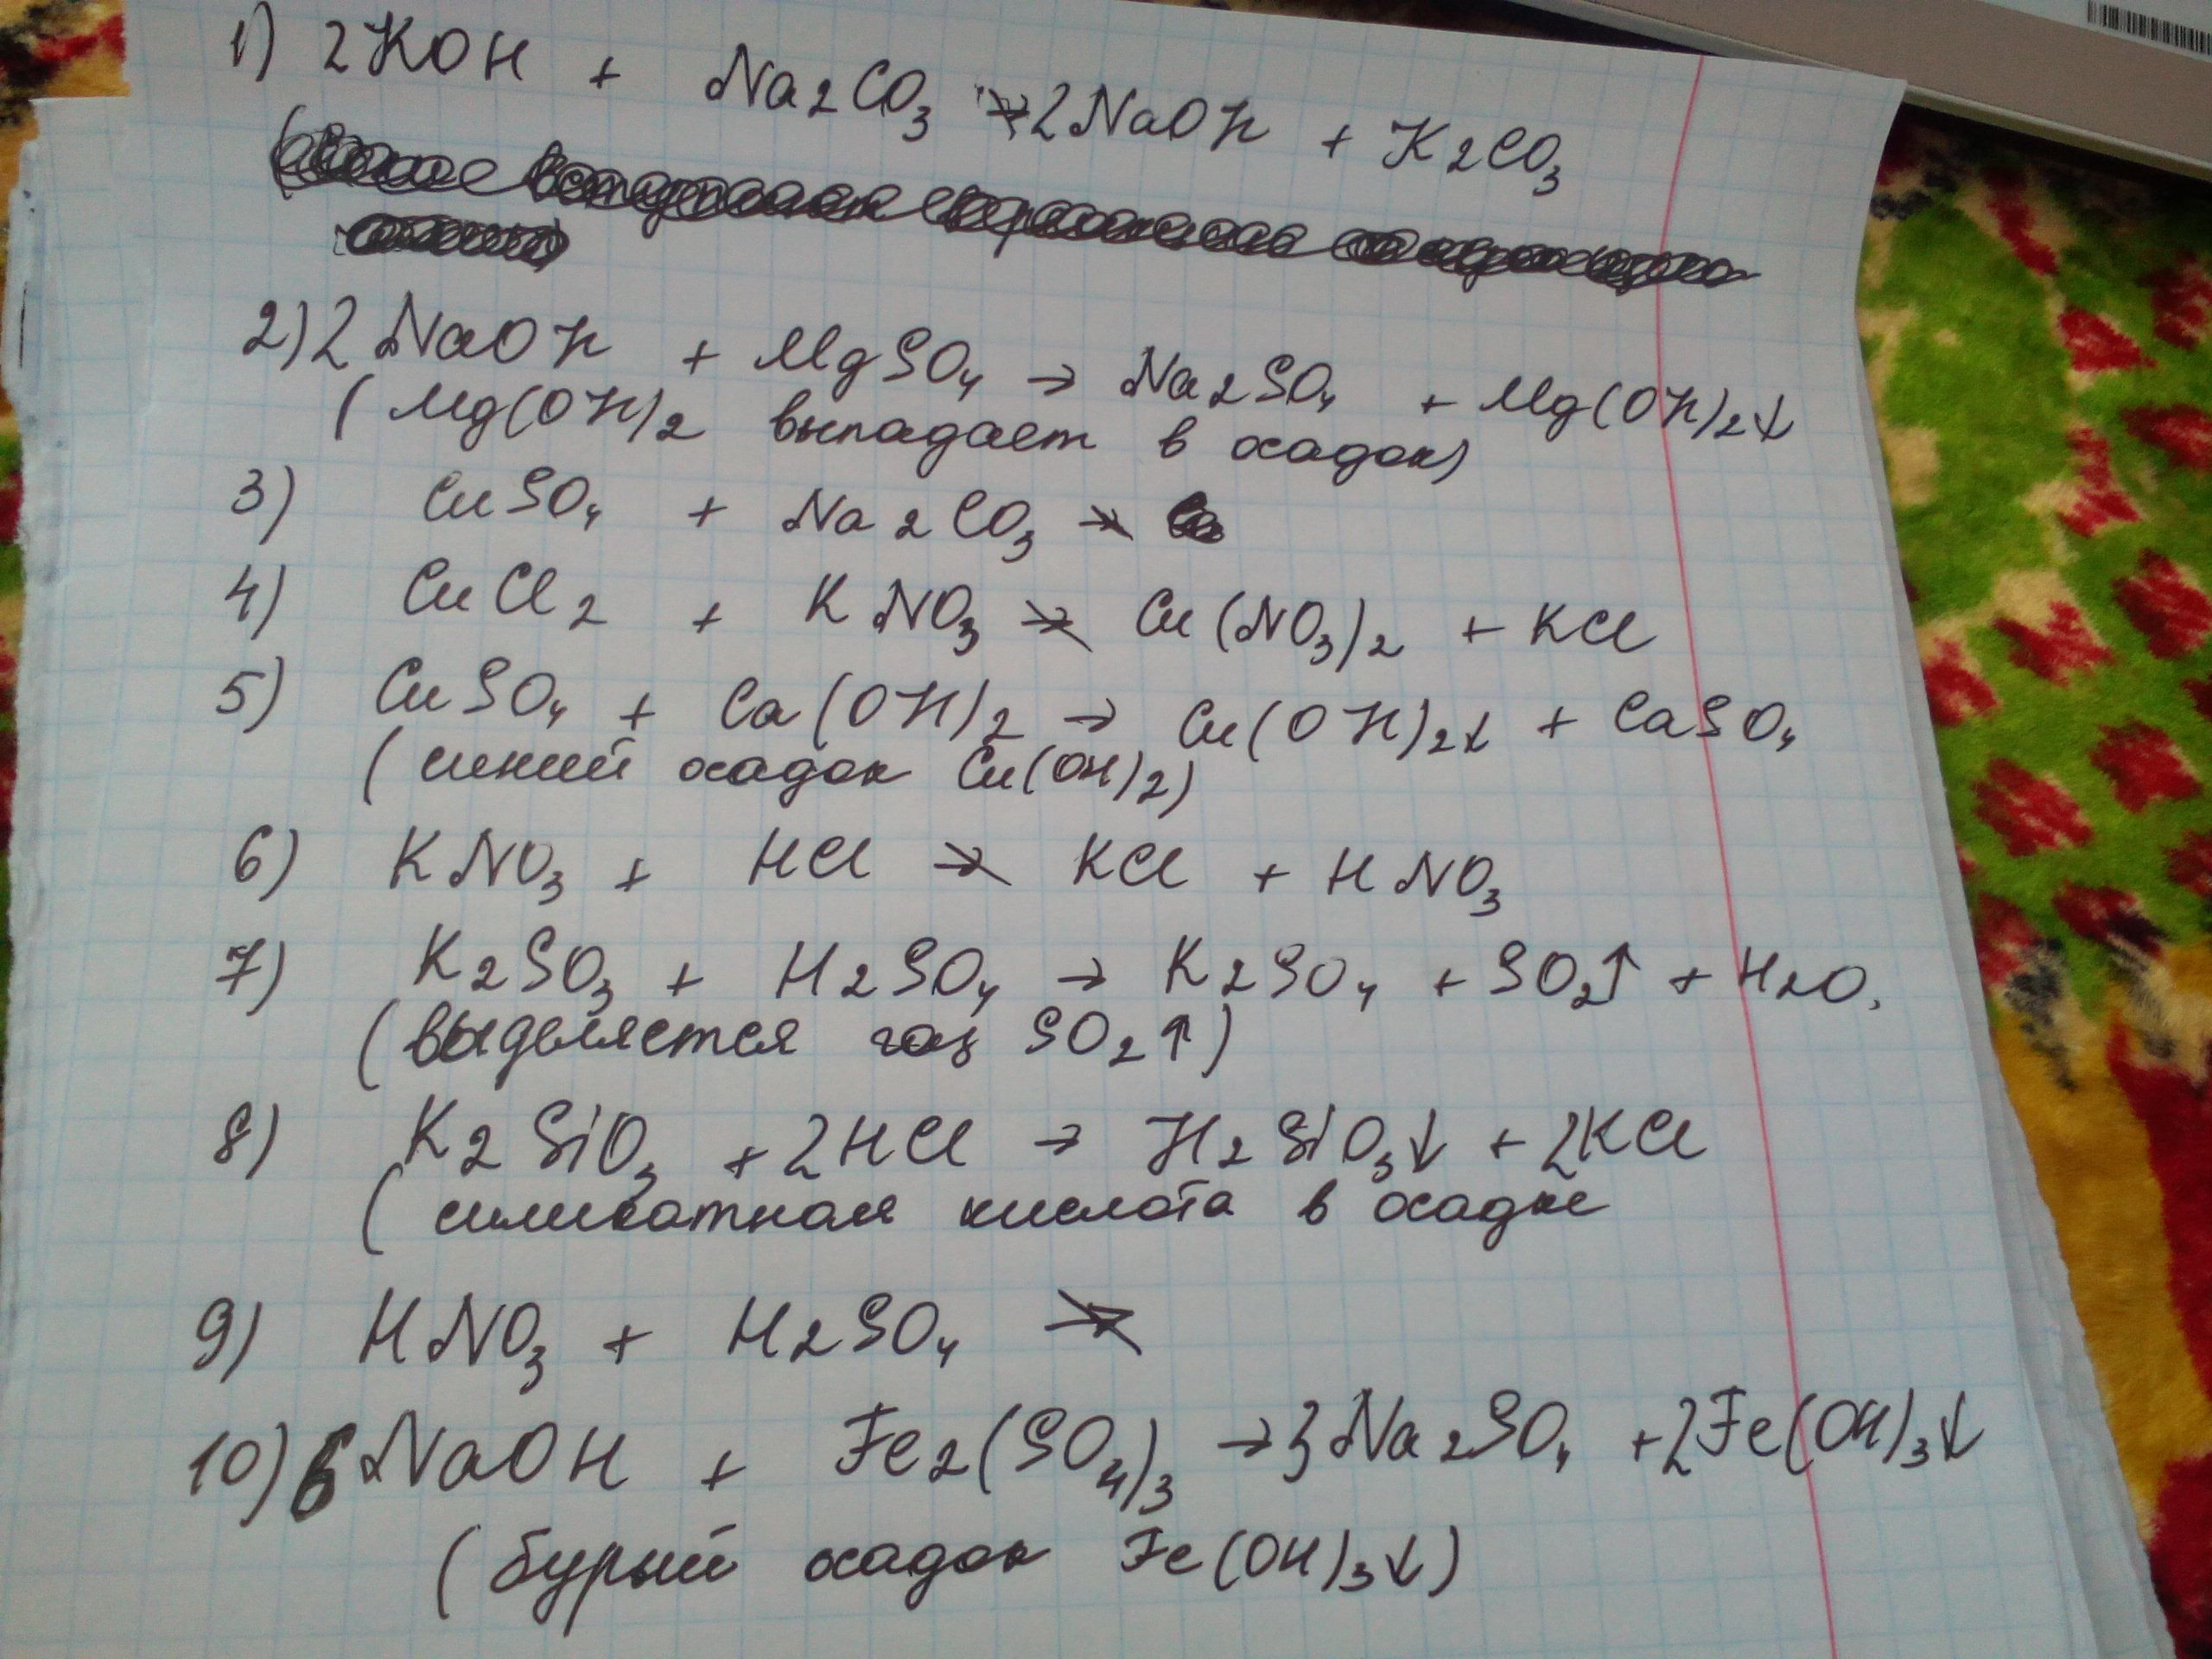 1) 2KOH + Na2CO3 ↛ 2NaOH + K2CO3
2) 2NaOH + MgSO4 → Na2SO4 + Mg(OH)2↓
(Mg(OH)2 выпадает в осадок)
3) CuSO4 + Na2CO3 ↛
4) CuCl2 + KNO3 ↛ Cu(NO3)2 + KCl
5) CuSO4 + Ca(OH)2 → Cu(OH)2↓ + CaSO4
(синий осадок Cu(OH)2)
6) KNO3 + HCl ↛ KCl + HNO3
7) K2SO3 + H2SO4 → K2SO4 + SO2↑ + H2O,
(выделяется газ SO2↑)
8) K2SiO3 + 2HCl → H2SiO3↓ + 2KCl
(силикатная кислота в осадке
9) HNO3 + H2SO4 ↛
10) 6NaOH + Fe2(SO4)3 → 3Na2SO4 + 2Fe(OH)3↓
(бурый осадок Fe(OH)3↓)